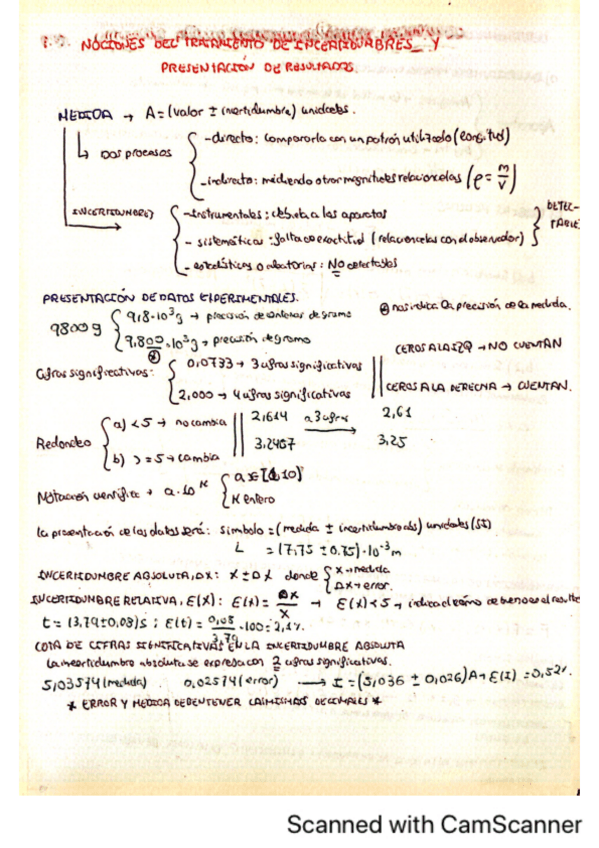 NOCIONES DEL TRATAMIENTO DE INCERTIDUMBRES Y
PRESENTACIÓN DE RESULTADOS.
MEDIDA → A = (valor ± incertidumbre) unidades.
↳ Dos procesos
- directo: compararla con un patrón utilizado (longitud)
- indirecto: midiendo otras magnitudes relacionadas (ρ = m/V)
INCERTIDUMBRES
- instrumentales: debida a los aparatos
- sistemáticas: falta de exactitud (relacionadas con el observador)
DETECTABLE
- estadísticas o aleatorias: NO detectables
PRESENTACIÓN DE DATOS EXPERIMENTALES.
⊛ nos indica la precisión de la medida.
9800 g
9,8·10³ g → precisión de centenas de gramo
9,800·10³ g → precisión de gramo
Cifras significativas:
0,0733 → 3 cifras significativas
2,000 → 4 cifras significativas
CEROS A LA IZQ → NO CUENTAN
CEROS A LA DERECHA → CUENTAN.
Redondeo
a) < 5 → no cambia
b) > = 5 → cambia
2,614 a 3 cifras → 2,61
3,2467 3,25
Notación científica → a·10^K
a ∈ [1,10)
K entero
La presentación de los datos será: símbolo = (medida ± incertidumbre) unidades (SI)
L = (7,75 ± 0,75)·10⁻³ m
INCERTIDUMBRE ABSOLUTA, Δx: x ± Δx donde
x → medida
Δx → error.
INCERTIDUMBRE RELATIVA, E(x): E(x) = Δx/x → E(x) < 5 → indica el cómo de bueno es el resulta
t = (3,79 ± 0,08) s; E(t) = 0,08/3,79 · 100 = 2,1%
COTA DE CIFRAS SIGNIFICATIVAS EN LA INCERTIDUMBRE ABSOLUTA
La incertidumbre absoluta se expresa con 2 cifras significativas.
5,03574 (medida) 0,02574 (error) → I = (5,036 ± 0,026) A → E(I) = 0,52%.
* ERROR Y MEDIDA DEBEN TENER LAS MISMAS DECIMALES *
Scanned with CamScanner